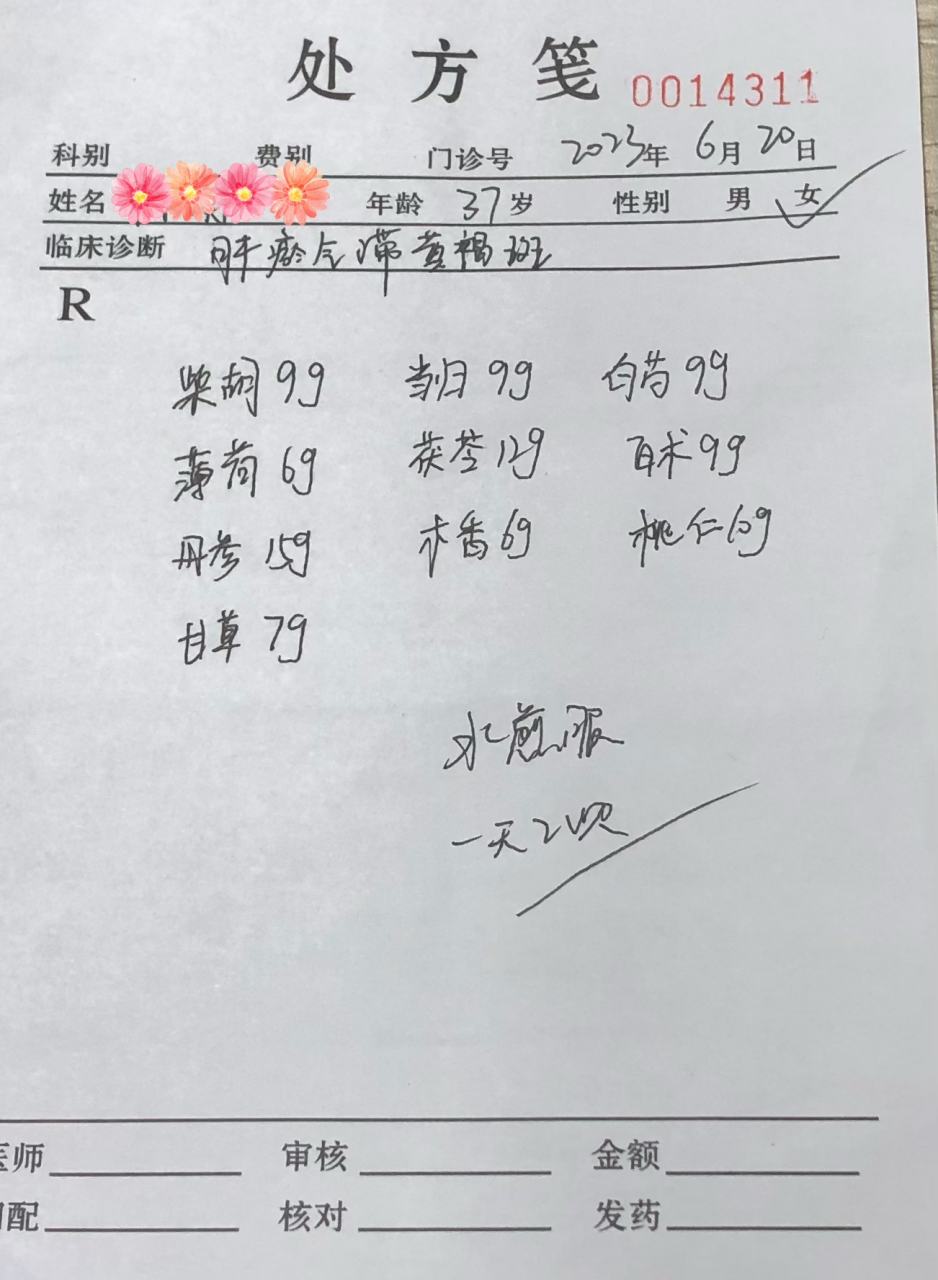 处方笺 0014311
科别 费别 门诊号 2023年 6月 20日
姓名 年龄 37岁 性别 男 女
临床诊断 肝瘀气滞黄褐斑
R
柴胡 9g 当归 9g 白芍 9g
薄荷 6g 茯苓 12g 白术 9g
丹参 15g 木香 6g 桃仁 10g
甘草 7g
水煎服
一天2次
医师 审核 金额
调配 核对 发药